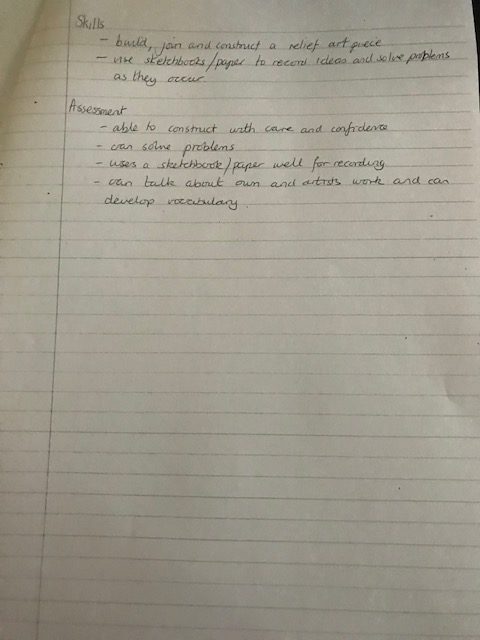 Skills
- build, join and construct a relief art piece
- use sketchbooks/paper to record ideas and solve problems
as they occur.
Assessment
- able to construct with care and confidence
- can solve problems
- uses a sketchbook/paper well for recording
- can talk about own and artists work and can
develop vocabulary.